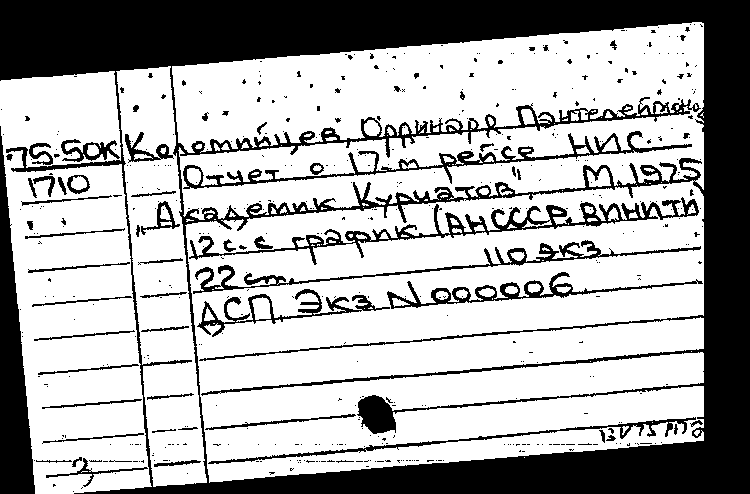 75-50К Коломийцев, Ординард Пантелеймоно
1710 Отчет о 17-м рейсе НИС
„Академик Курчатов". М, 1975
12 с. с график. (АН СССР. ВИНИТИ)
22 см. 110 экз.
ДСП. Экз N 000006.
13 V 75
3